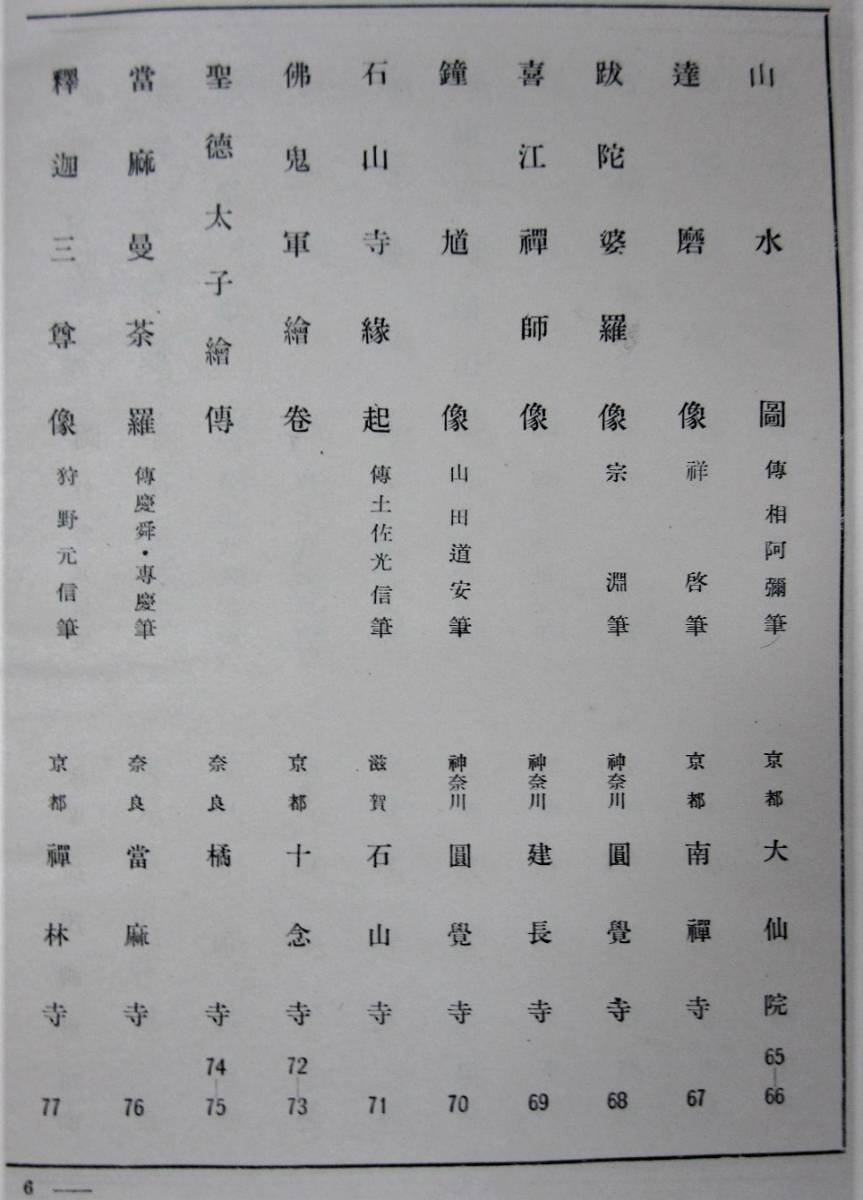 山水圖 傳相阿彌筆 京都 大仙院 65—66
達磨像 祥啓筆 京都 南禪寺 67
跋陀婆羅像 宗淵筆 神奈川 圓覺寺 68
喜江禪師像 神奈川 建長寺 69
鐘馗像 山田道安筆 神奈川 圓覺寺 70
石山寺緣起 傳土佐光信筆 滋賀 石山寺 71
佛鬼軍繪卷 京都 十念寺 72—73
聖德太子繪傳 奈良 橘寺 74—75
當麻曼茶羅 傳慶舜・專慶筆 奈良 當麻寺 76
釋迦三尊像 狩野元信筆 京都 禪林寺 77
6 —